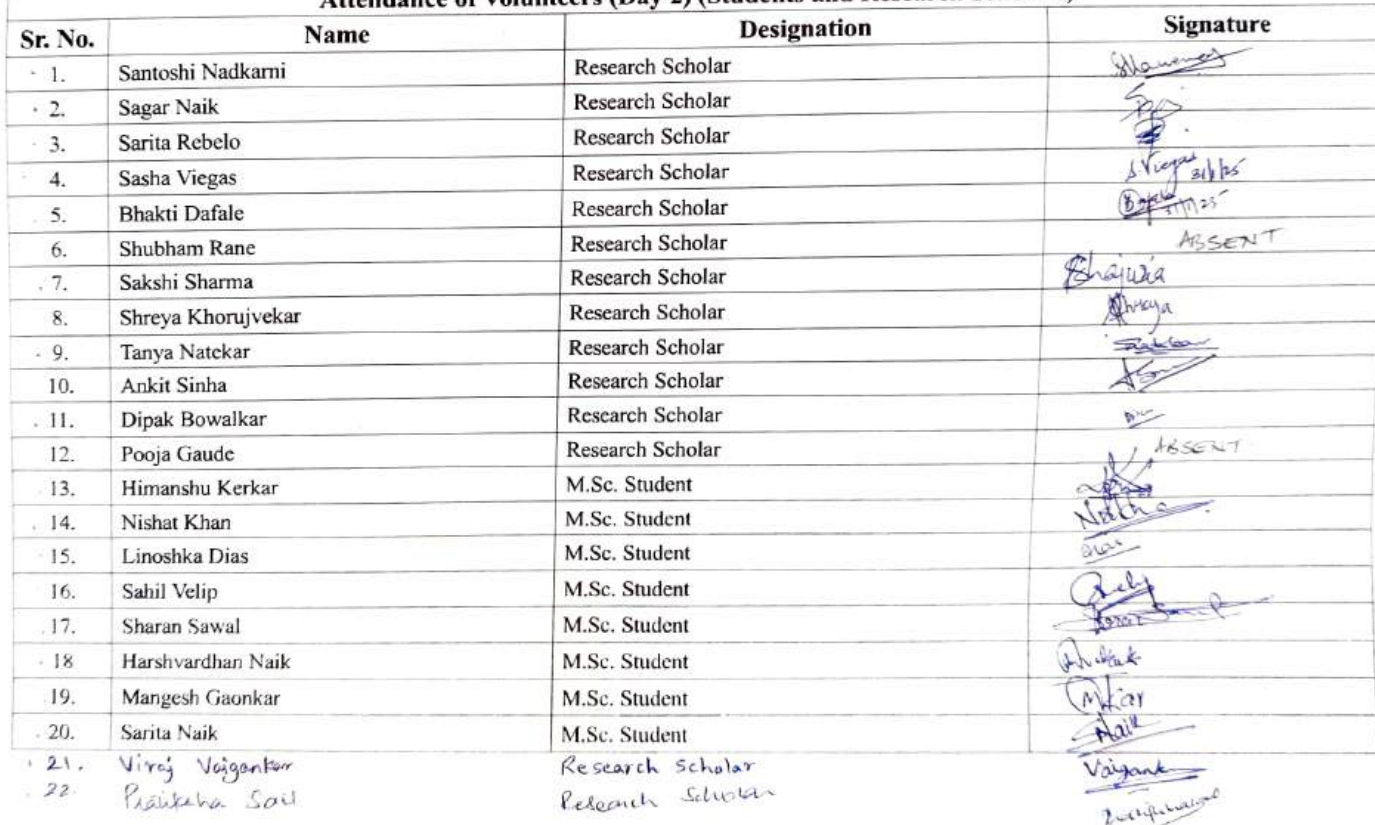 Attendance of Volunteers (Day 2) (Students and Research Scholars)
Sr. No. Name Designation Signature
1. Santoshi Nadkarni Research Scholar
2. Sagar Naik Research Scholar
3. Sarita Rebelo Research Scholar
4. Sasha Viegas Research Scholar S.Viegas 31/1/25
5. Bhakti Dafale Research Scholar 31/1/25
6. Shubham Rane Research Scholar ABSENT
7. Sakshi Sharma Research Scholar
8. Shreya Khorujvekar Research Scholar Shreya
9. Tanya Natekar Research Scholar
10. Ankit Sinha Research Scholar
11. Dipak Bowalkar Research Scholar
12. Pooja Gaude Research Scholar ABSENT
13. Himanshu Kerkar M.Sc. Student
14. Nishat Khan M.Sc. Student
15. Linoshka Dias M.Sc. Student
16. Sahil Velip M.Sc. Student
17. Sharan Sawal M.Sc. Student
18 Harshvardhan Naik M.Sc. Student
19. Mangesh Gaonkar M.Sc. Student
20. Sarita Naik M.Sc. Student Naik
21. Viraj Vaigankar Research Scholar
22. Sail Research Scholar